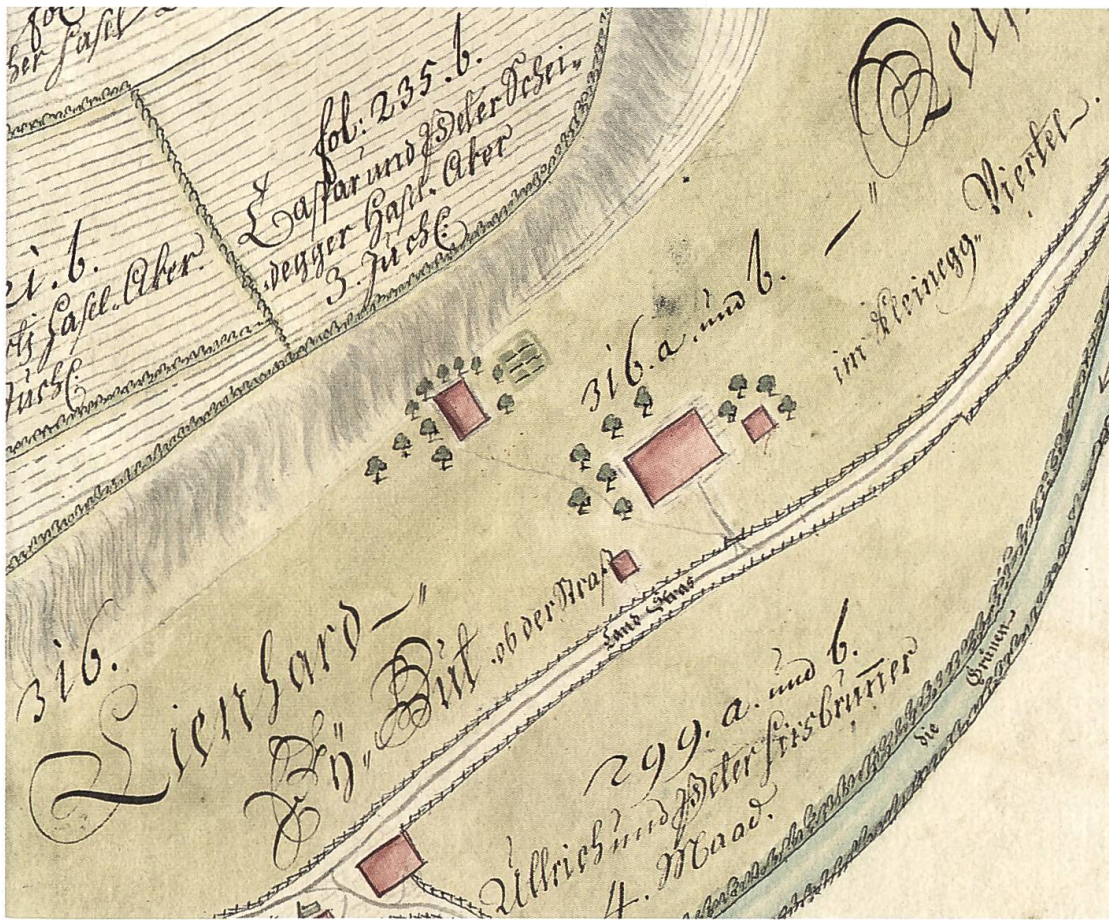 fol:
Hasel
fol: 235. b.
Caspar und Peter Schei-
degger Hasel-Aker
3. Juch
21. b.
Hasel-Aker.
Juch
316. a. und b.
im Kleinegg,,
Viertel.
316.
Lienhard
Gut ob der Straß
Land Stras
299. a. und b.
Ullrich und Peter Hirsbrun̄er
4. Maad.
die Grünen